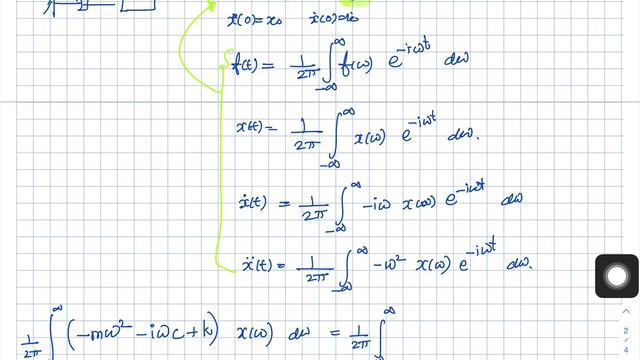 x(0)=x₀ ẋ(0)=ẋ₀
f(t) = 1/2π ∫_{-∞}^{∞} f(ω) e^{-iωt} dω
x(t) = 1/2π ∫_{-∞}^{∞} x(ω) e^{-iωt} dω.
ẋ(t) = 1/2π ∫_{-∞}^{∞} -iω x(ω) e^{-iωt} dω
ẍ(t) = 1/2π ∫_{-∞}^{∞} -ω² x(ω) e^{-iωt} dω.
1/2π ∫^{∞} (-mω² - iωc + k) x(ω) dω = 1/2π ∫^{∞}
2
4